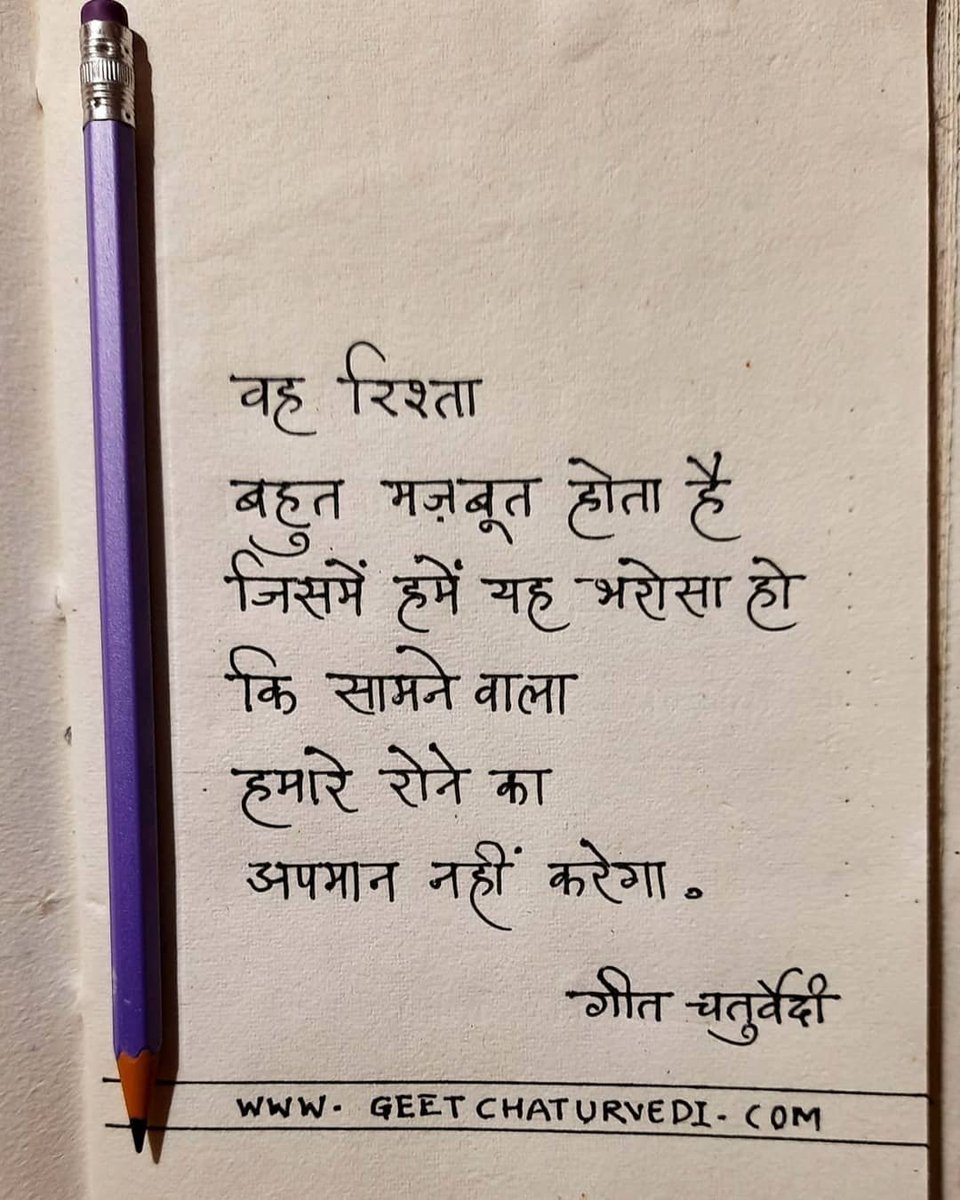 वह रिश्ता
बहुत मज़बूत होता है
जिसमें हमें यह भरोसा हो
कि सामने वाला
हमारे रोने का
अपमान नहीं करेगा.
गीत चतुर्वेदी
WWW. GEETCHATURVEDI. COM